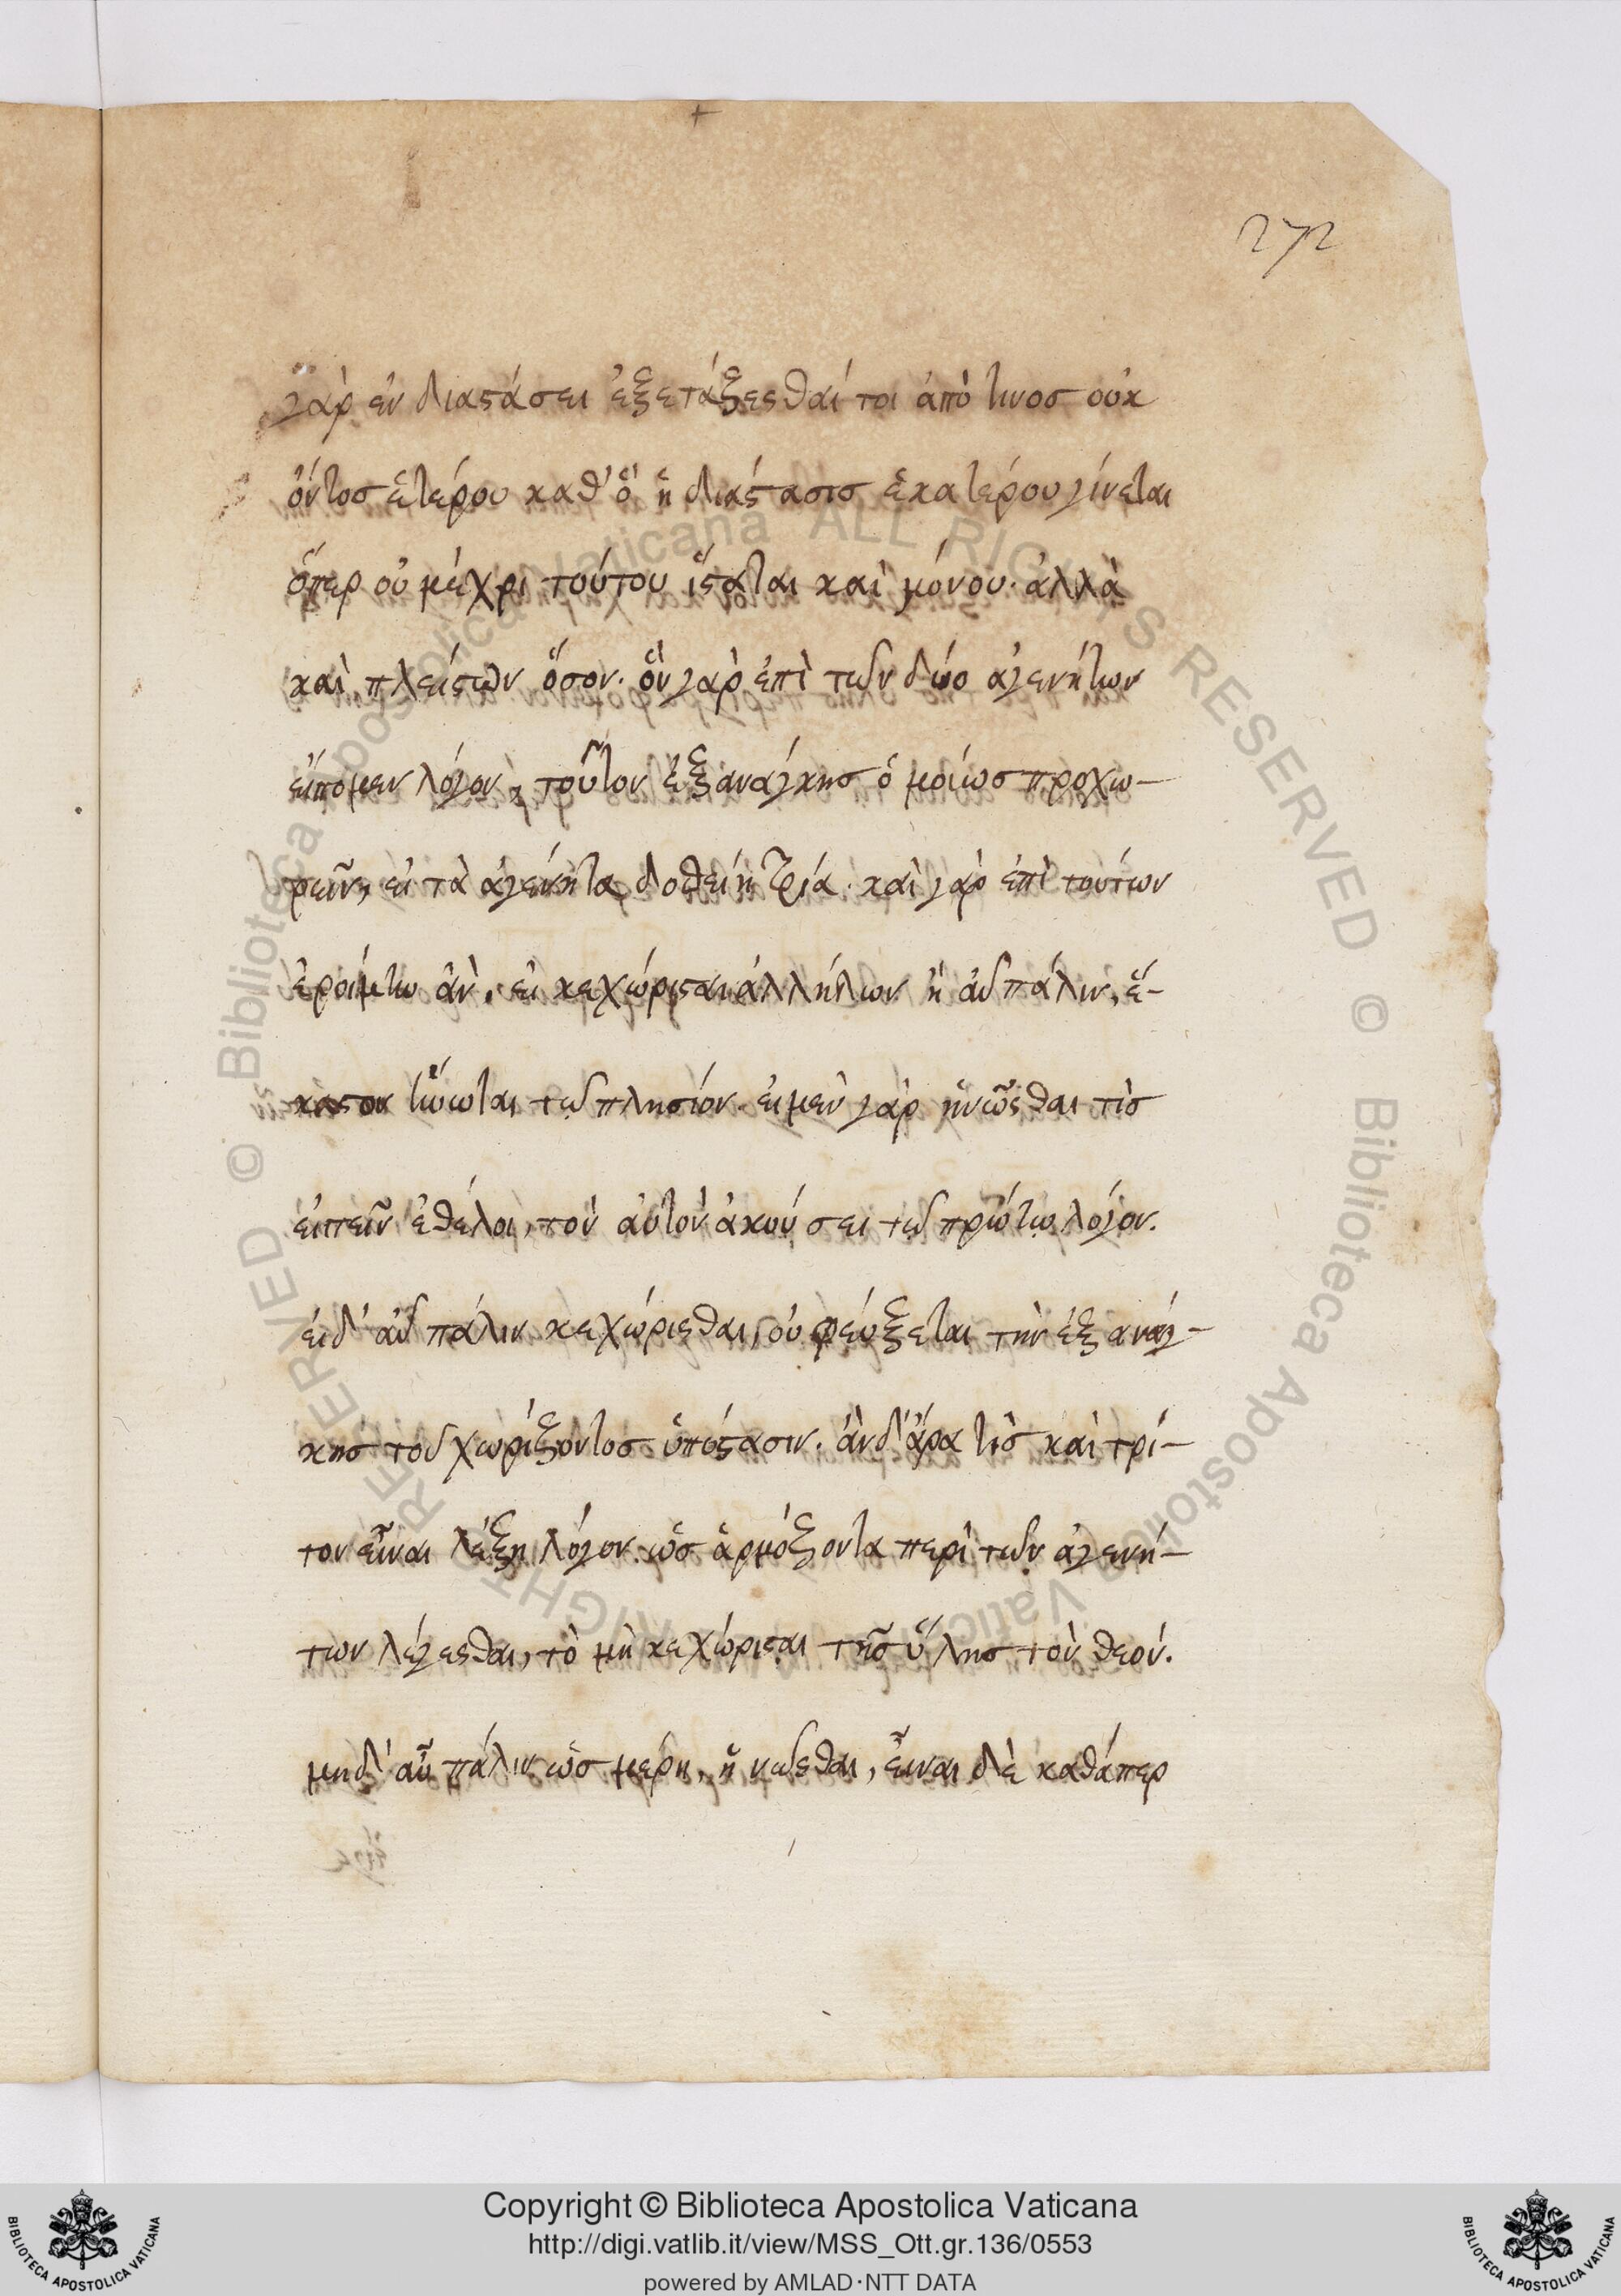 272
γὰρ ἐν διαστάσει ἐξετάζεσθαί τοι ἀπό τινοσ οὐκ
ὄντοσ ἑτέρου καθ' ὃ ἡ διάστασισ ἑκατέρου γίνεται
ὅπερ οὐ μέχρι τούτου ἵσταται καὶ μόνου· ἀλλὰ
καὶ πλείστων ὅσον. ὃν γὰρ ἐπὶ τῶν δύο ἀγενήτων
εἴπομεν λόγον, τοῦτον ἐξανάγκησ ὁμοίωσ προχω-
ρεῖν, εἰ τὰ ἀγένητα δοθείη τρία. καὶ γὰρ ἐπὶ τούτων
ἐροίμην ἂν, εἰ κεχώρισται ἀλλήλων ἢ αὖ πάλιν, ἕ-
καστον ἥνωται τῶ πλησίον. εἰ μὲν γὰρ ἡνῶσθαι τίσ
εἰπεῖν ἐθέλοι, τὸν αὐτὸν ἀκούσει τῶ πρώτω λόγον.
εἰ δ' αὖ πάλιν κεχώρισθαι, οὐ φεύξεται τὴν ἐξ ανάγ-
κησ τοῦ χωρίζοντοσ ὑπόστασιν. ἂν δ' ἄρα τὶσ καὶ τρί-
τον εἶναι λέξη λόγον ὡσ ἁρμόζοντα περὶ τῶν ἀγενή-
των λέγεσθαι, τὸ μὴ κεχώρισται τῆσ ὕλησ τὸν θεόν.
μηδ' αὖ πάλιν ὡσ μέρη, ἡνῶσθαι, εἶναι δὲ καθάπερ
Copyright © Biblioteca Apostolica Vaticana
http://digi.vatlib.it/view/MSS_Ott.gr.136/0553
powered by AMLAD·NTT DATA
BIBLIOTECA APOSTOLICA VATICANA
BIBLIOTECA APOSTOLICA VATICANA
© Biblioteca Apostolica Vaticana ALL RIGHTS RESERVED © Biblioteca Apostolica Vaticana ALL RIGHTS RESERVED